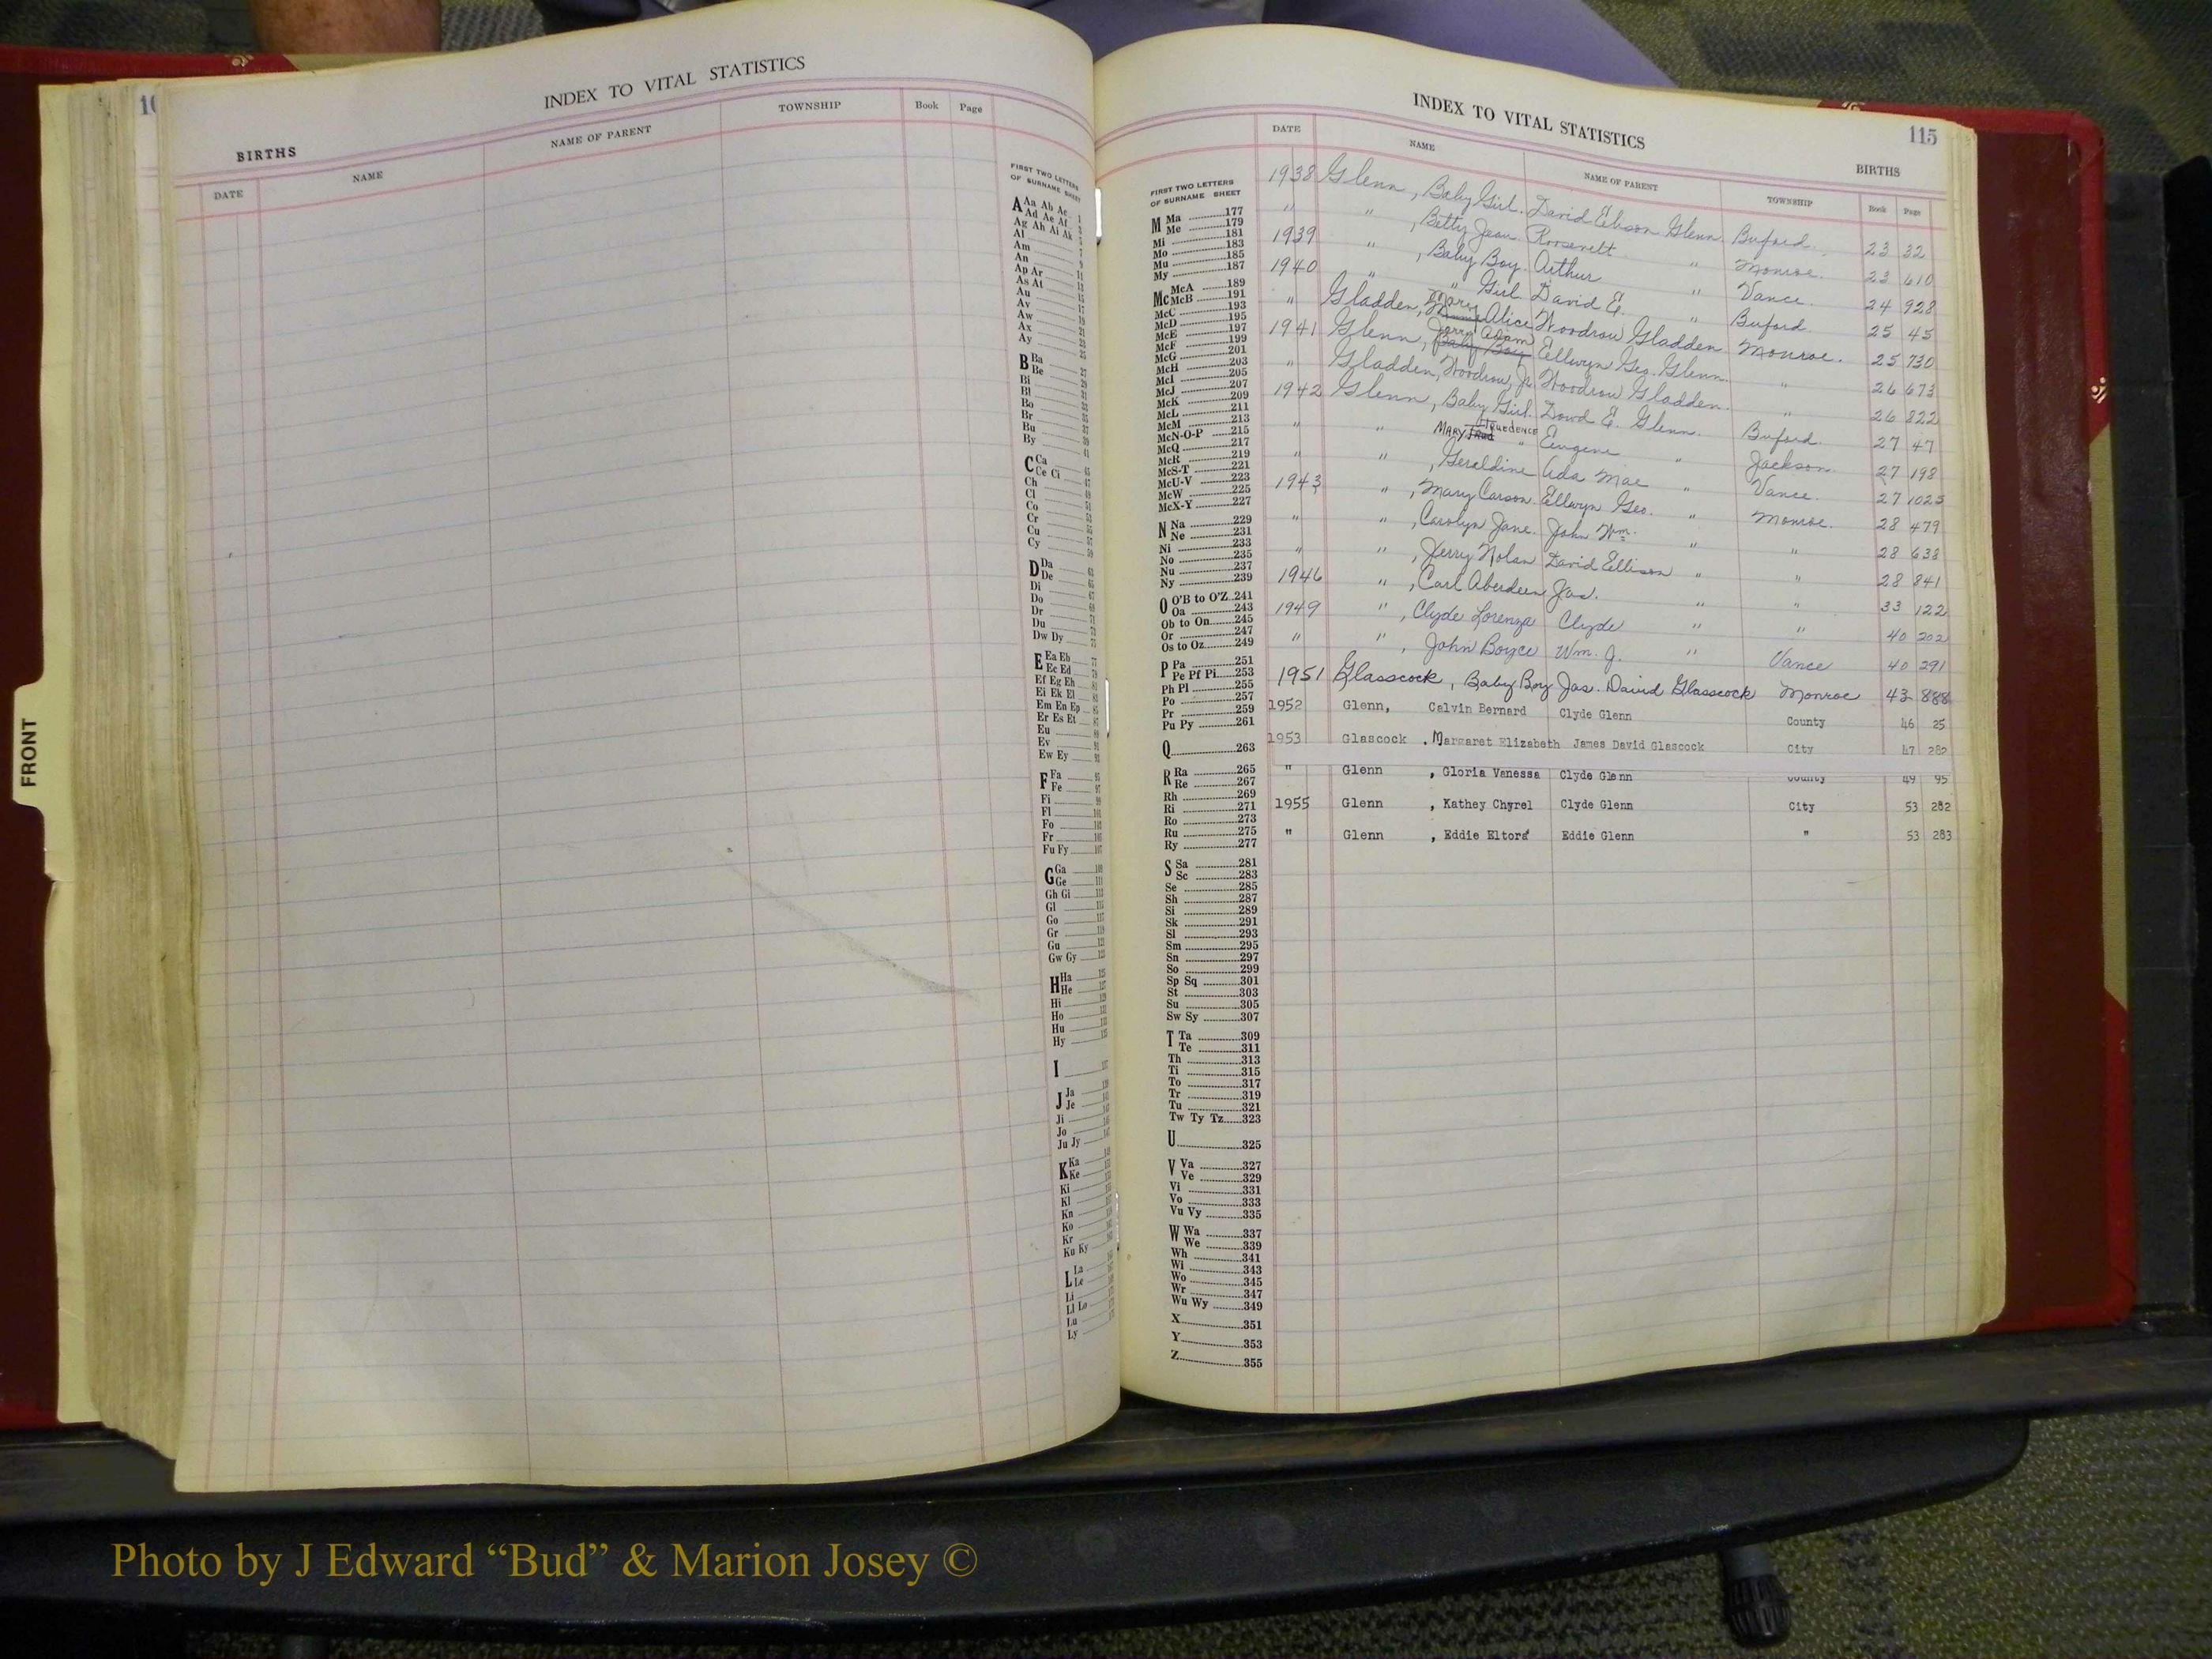 10
INDEX TO VITAL STATISTICS
BIRTHS
DATE NAME NAME OF PARENT TOWNSHIP Book Page
FIRST TWO LETTERS
OF SURNAME SHEET
A Aa Ab Ac
Ad Ae Af
Ag Ah Ai Ak
Al
Am
An
Ap Ar
As At
Au
Av
Aw
Ax
Ay
B Ba
Be
Bi
Bl
Bo
Br
Bu
By
C Ca
Ce Ci
Ch
Cl
Co
Cr
Cu
Cy
D Da
De
Di
Do
Dr
Du
Dw Dy
E Ea Eb
Ec Ed
Ef Eg Eh
Ei Ek El
Em En Ep
Er Es Et
Eu
Ev
Ew Ey
F Fa
Fe
Fi
Fl
Fo
Fr
Fu Fy
G Ga
Ge
Gh Gi
Gl
Go
Gr
Gu
Gw Gy
H Ha
He
Hi
Ho
Hu
Hy
I
J Ja
Je
Ji
Jo
Ju Jy
K Ka
Ke
Ki
Kl
Kn
Ko
Kr
Ku Ky
L La
Le
Li
Ll Lo
Lu
Ly
FRONT
INDEX TO VITAL STATISTICS
115
BIRTHS
DATE NAME NAME OF PARENT TOWNSHIP Book Page
FIRST TWO LETTERS
OF SURNAME SHEET
M Ma 177
Me 179
Mi 181
Mo 183
Mu 185
My 187
Mc McA 189
McB 191
McC 193
McD 195
McE 197
McF 199
McG 201
McH 203
McI 205
McJ 207
McK 209
McL 211
McM 213
McN-O-P 215
McQ 217
McR 219
McS-T 221
McU-V 223
McW 225
McX-Y 227
N Na 229
Ne 231
Ni 233
No 235
Nu 237
Ny 239
O O'B to O'Z 241
Oa 243
Ob to On 245
Or 247
Os to Oz 249
P Pa 251
Pe Pf Pi 253
Ph Pl 255
Po 257
Pr 259
Pu Py 261
Q 263
R Ra 265
Re 267
Rh 269
Ri 271
Ro 273
Ru 275
Ry 277
S Sa 281
Sc 283
Se 285
Sh 287
Si 289
Sk 291
Sl 293
Sm 295
Sn 297
So 299
Sp Sq 301
St 303
Su 305
Sw Sy 307
T Ta 309
Te 311
Th 313
Ti 315
To 317
Tr 319
Tu 321
Tw Ty Tz 323
U 325
V Va 327
Ve 329
Vi 331
Vo 333
Vu Vy 335
W Wa 337
We 339
Wh 341
Wi 343
Wo 345
Wr 347
Wu Wy 349
X 351
Y 353
Z 355
1938 Glenn, Baby Girl. David Ebison Glenn Buford. 23 32
" " , Betty Jean Roosevelt " Monroe. 23 610
1939 " , Baby Boy. Arthur " Vance. 24 928
1940 " " Girl David E. " Buford. 25 45
" Gladden, Mary Alice Woodrow Gladden. Monroe. 25 730
1941 Glenn, Jerry Adam Baby Boy Ellwyn Geo. Glenn. " 26 673
" Gladden, Woodrow, Jr. Woodrow Gladden. " 26 822
1942 Glenn, Baby Girl. Dowd E. Glenn. Buford. 27 47
" " MARY " Eugene " Jackson. 27 198
" " , Geraldine Ada Mae " Vance. 27 1025
1943 " , Mary Carson. Ellwyn Geo. " Monroe. 28 479
" " , Carolyn Jane. John Wm. " " 28 638
" " , Jerry Nolan David Ellison " " 28 841
1946 " , Carl Aberdeen Jas. " " 33 122
1949 " , Clyde Lorenza Clyde " " 40 202
" " , John Boyce Wm. J. " Vance 40 291
1951 Glasscock, Baby Boy Jas. David Glasscock Monroe 43 888
1952 Glenn, Calvin Bernard Clyde Glenn County 46 25
1953 Glascock , Margaret Elizabeth James David Glascock City 47 282
" Glenn , Gloria Vanessa Clyde Glenn County 49 95
1955 Glenn , Kathey Chyrel Clyde Glenn City 53 282
" Glenn , Eddie Eltora Eddie Glenn " 53 283
Photo by J Edward “Bud” & Marion Josey ©